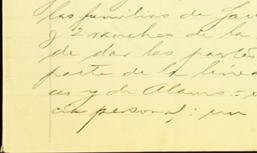 las familias de Jar
y 2 ranchos de la
de dar los partes
parte de la línea
es y de Alamo = e
cia personal; un